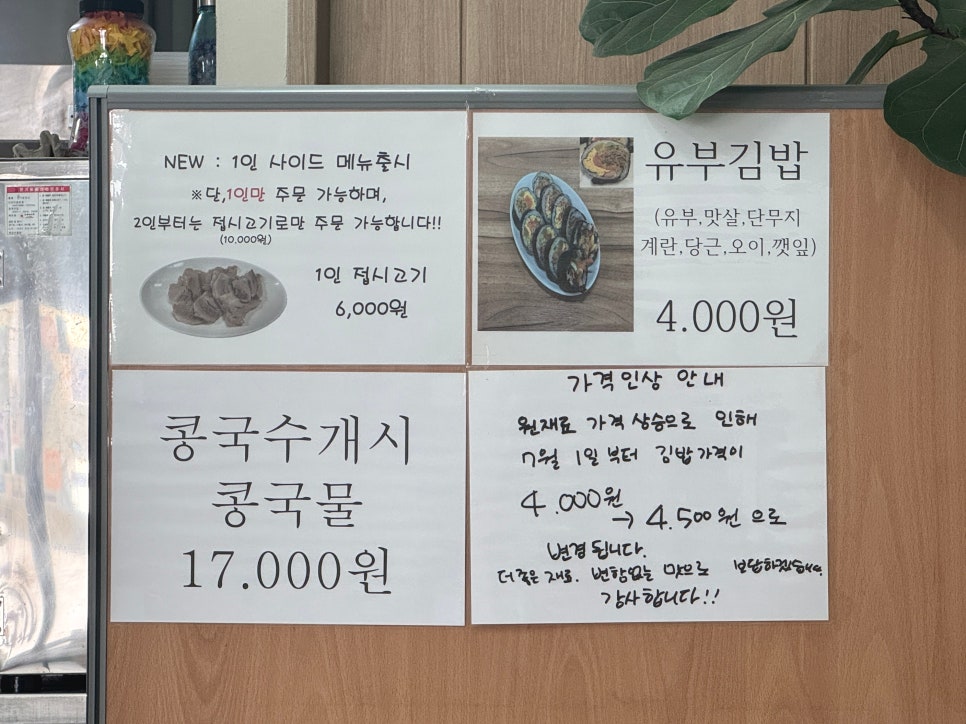 NEW : 1인 사이드 메뉴출시
※단,1인만 주문 가능하며,
2인부터는 접시고기로만 주문 가능합니다!!
(10,000원)
1인 접시고기
6,000원
유부김밥
(유부,맛살,단무지
계란,당근,오이,깻잎)
4.000원
콩국수개시
콩국물
17.000원
가격인상 안내
원재료 가격 상승으로 인해
7월 1일부터 김밥가격이
4.000원
→ 4.500원으로
변경됩니다.
더 좋은 재료. 변함없는 맛으로 보답하겠습니다.
감사합니다!!